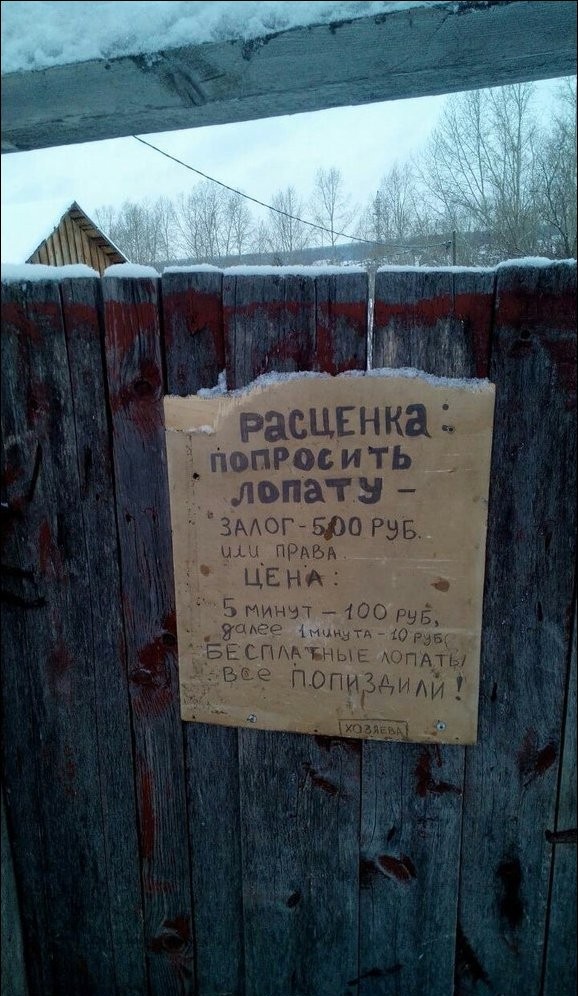 РАСЦЕНКА:
ПОПРОСИТЬ
ЛОПАТУ –
ЗАЛОГ - 500 РУБ.
или ПРАВА.
ЦЕНА:
5 минут – 100 руб,
далее 1 минута - 10 руб(
БЕСПЛАТНЫЕ ЛОПАТЫ
Все ПОПИЗДИЛИ!
ХОЗЯЕВА